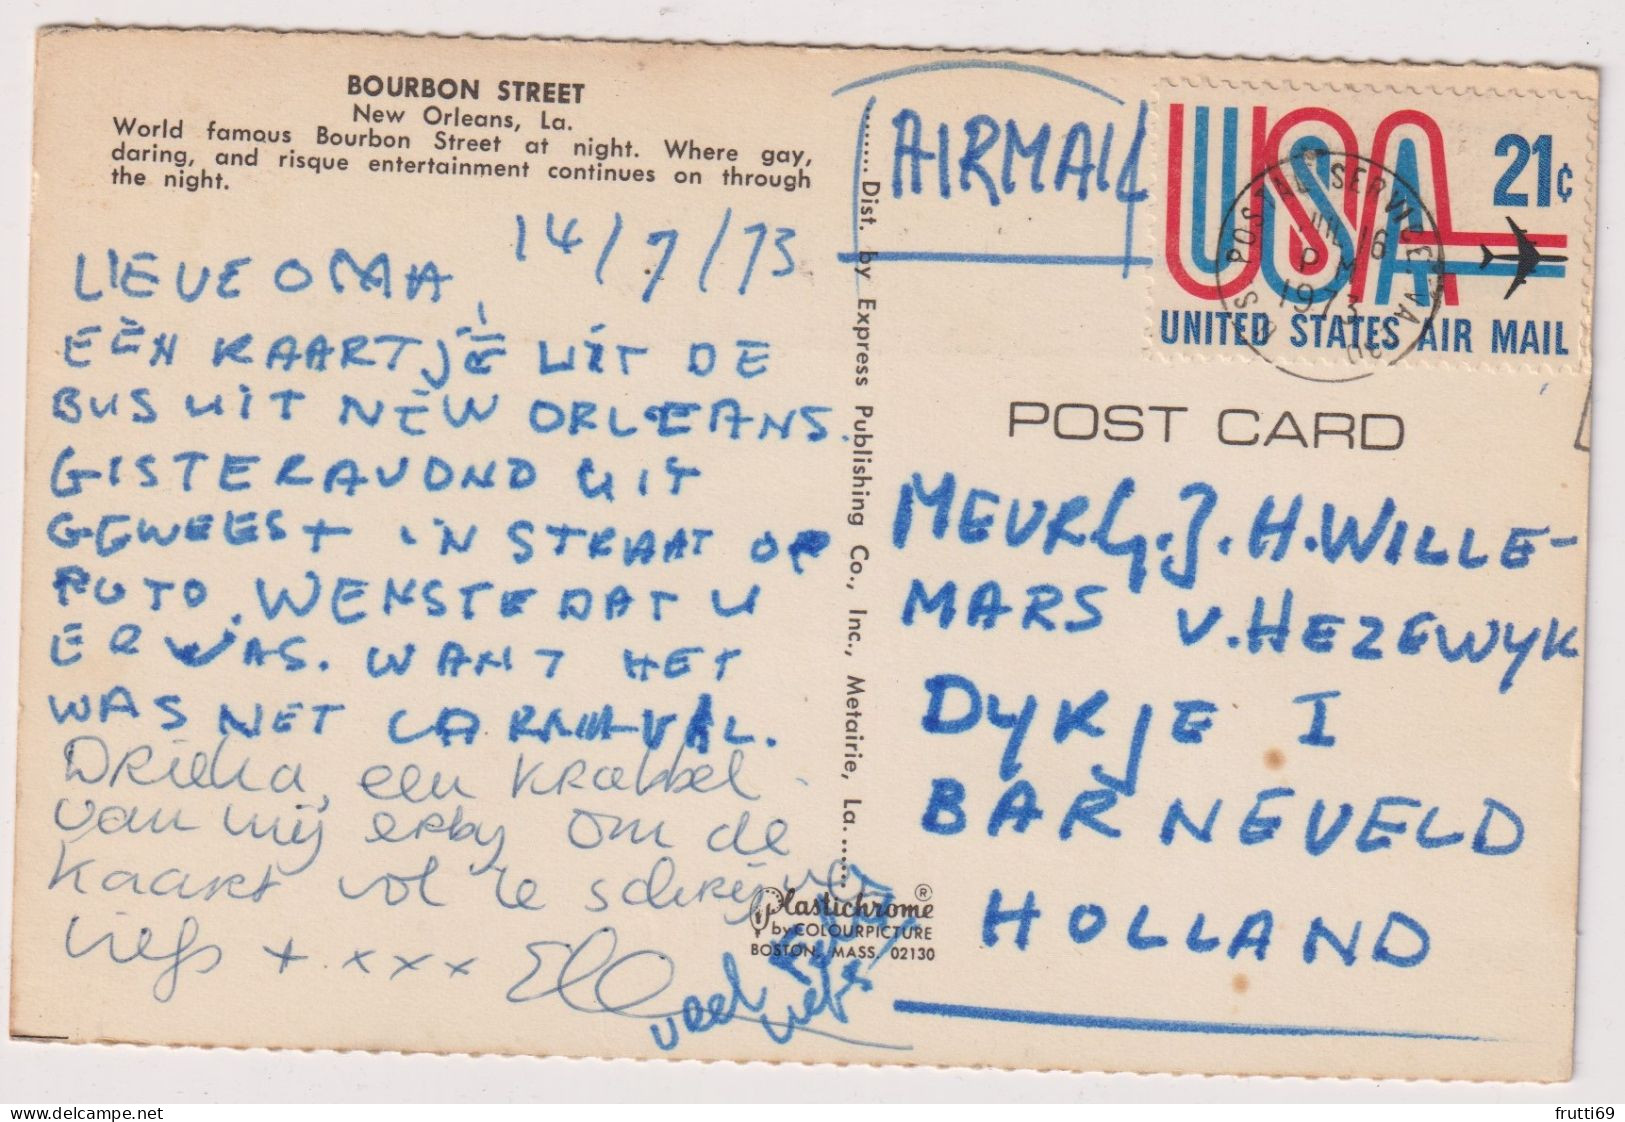 BOURBON STREET
New Orleans, La.
World famous Bourbon Street at night. Where gay,
daring, and risque entertainment continues on through
the night.
14/7/73
LIEVE OMA,
EÉN KAARTJE UIT DE
BUS UIT NEW ORLEANS.
GISTERAVOND UIT
GEWEEST IN STRAAT OP
FOTO. WENSTE DAT U
ER WAS. WANT HET
WAS NET CARNIVAL.
een krabbel
van mij erby om de
kaart vol te schrijven
liefs + xxx Ella
veel liefs
Dist. by Express Publishing Co., Inc., Metairie, La.
Plastichrome ®
by COLOURPICTURE
BOSTON, MASS. 02130
AIRMAIL
USA 21c
UNITED STATES AIR MAIL
POSTAL SERVICE, VA
JUL 16
PM
1973
POST CARD
MEVR G.J.H. WILLE-
MARS V. HEZEWYK
DYKJE I
BARNEVELD
HOLLAND
frutti69
© delcampe.net